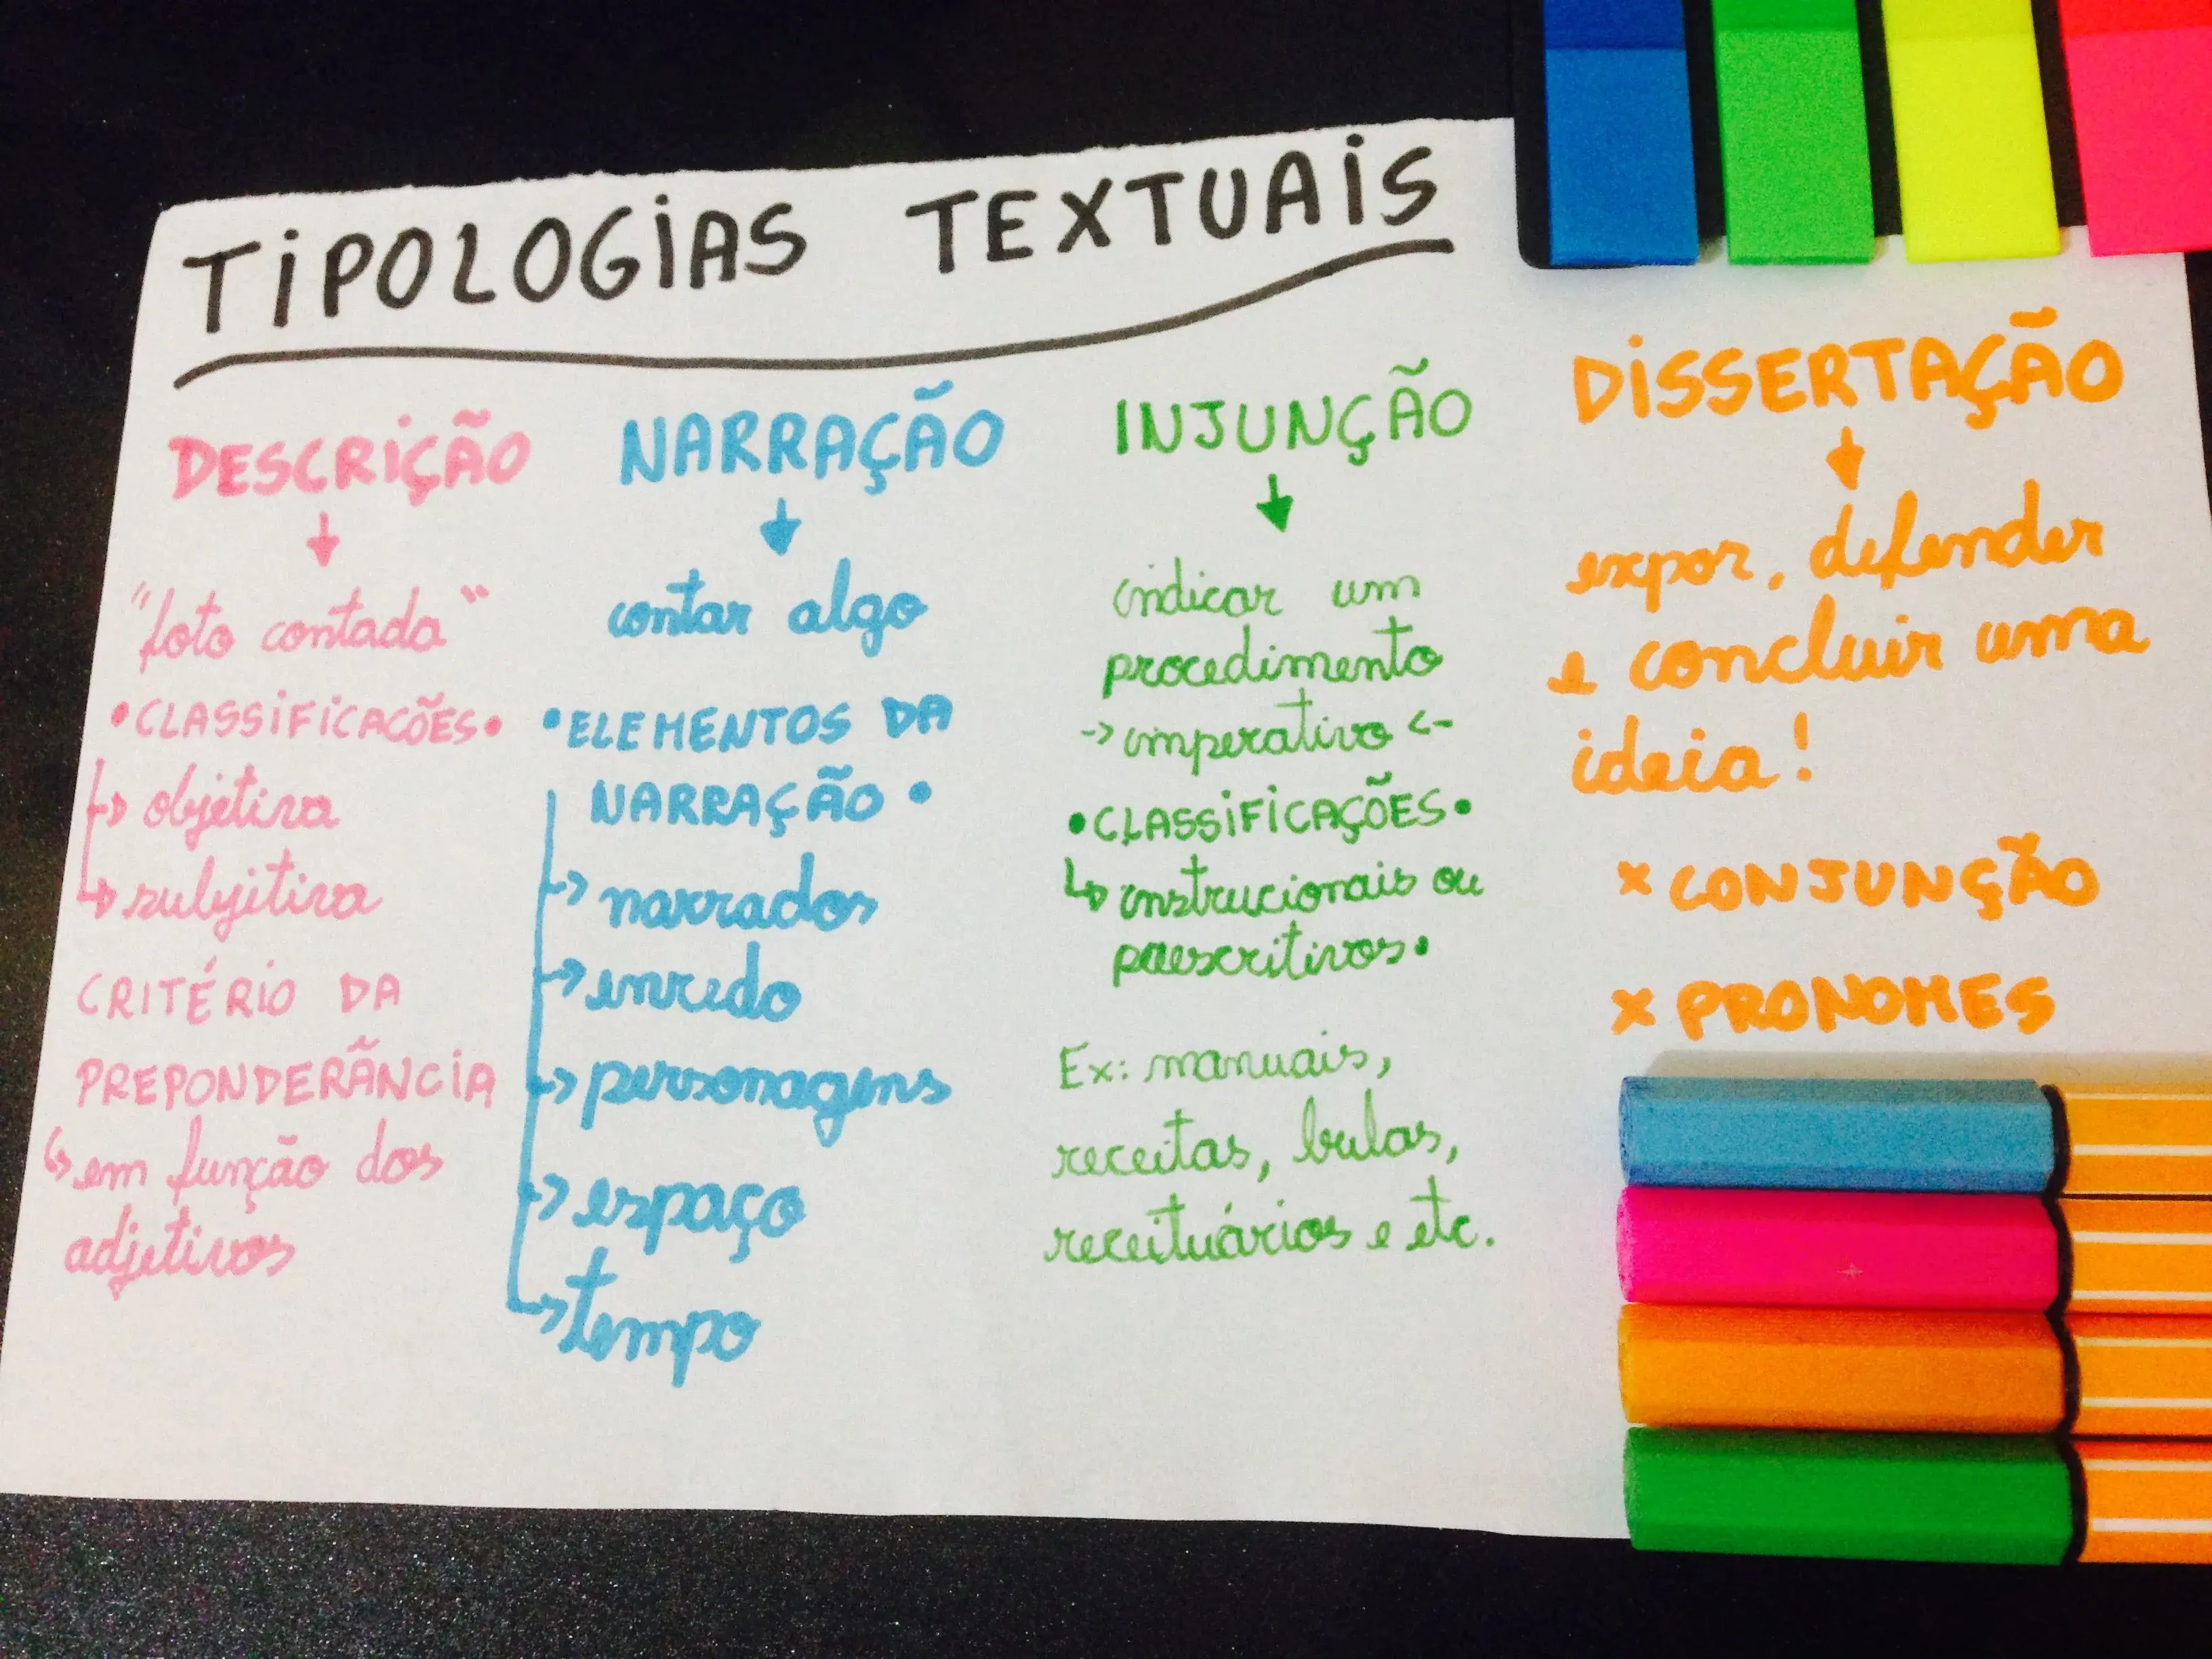 TIPOLOGIAS TEXTUAIS
DESCRIÇÃO
"foto contada"
•CLASSIFICAÇÕES•
objetiva
subjetiva
CRITÉRIO DA
PREPONDERÂNCIA
em função dos
adjetivos
NARRAÇÃO
contar algo
•ELEMENTOS DA
NARRAÇÃO•
narrador
enredo
personagens
espaço
tempo
INJUNÇÃO
indicar um
procedimento
-> imperativo <-
•CLASSIFICAÇÕES•
instrucionais ou
prescritivos•
Ex: manuais,
receitas, bulas,
receituários e etc.
DISSERTAÇÃO
expor, defender
e concluir uma
ideia!
x CONJUNÇÃO
x PRONOMES